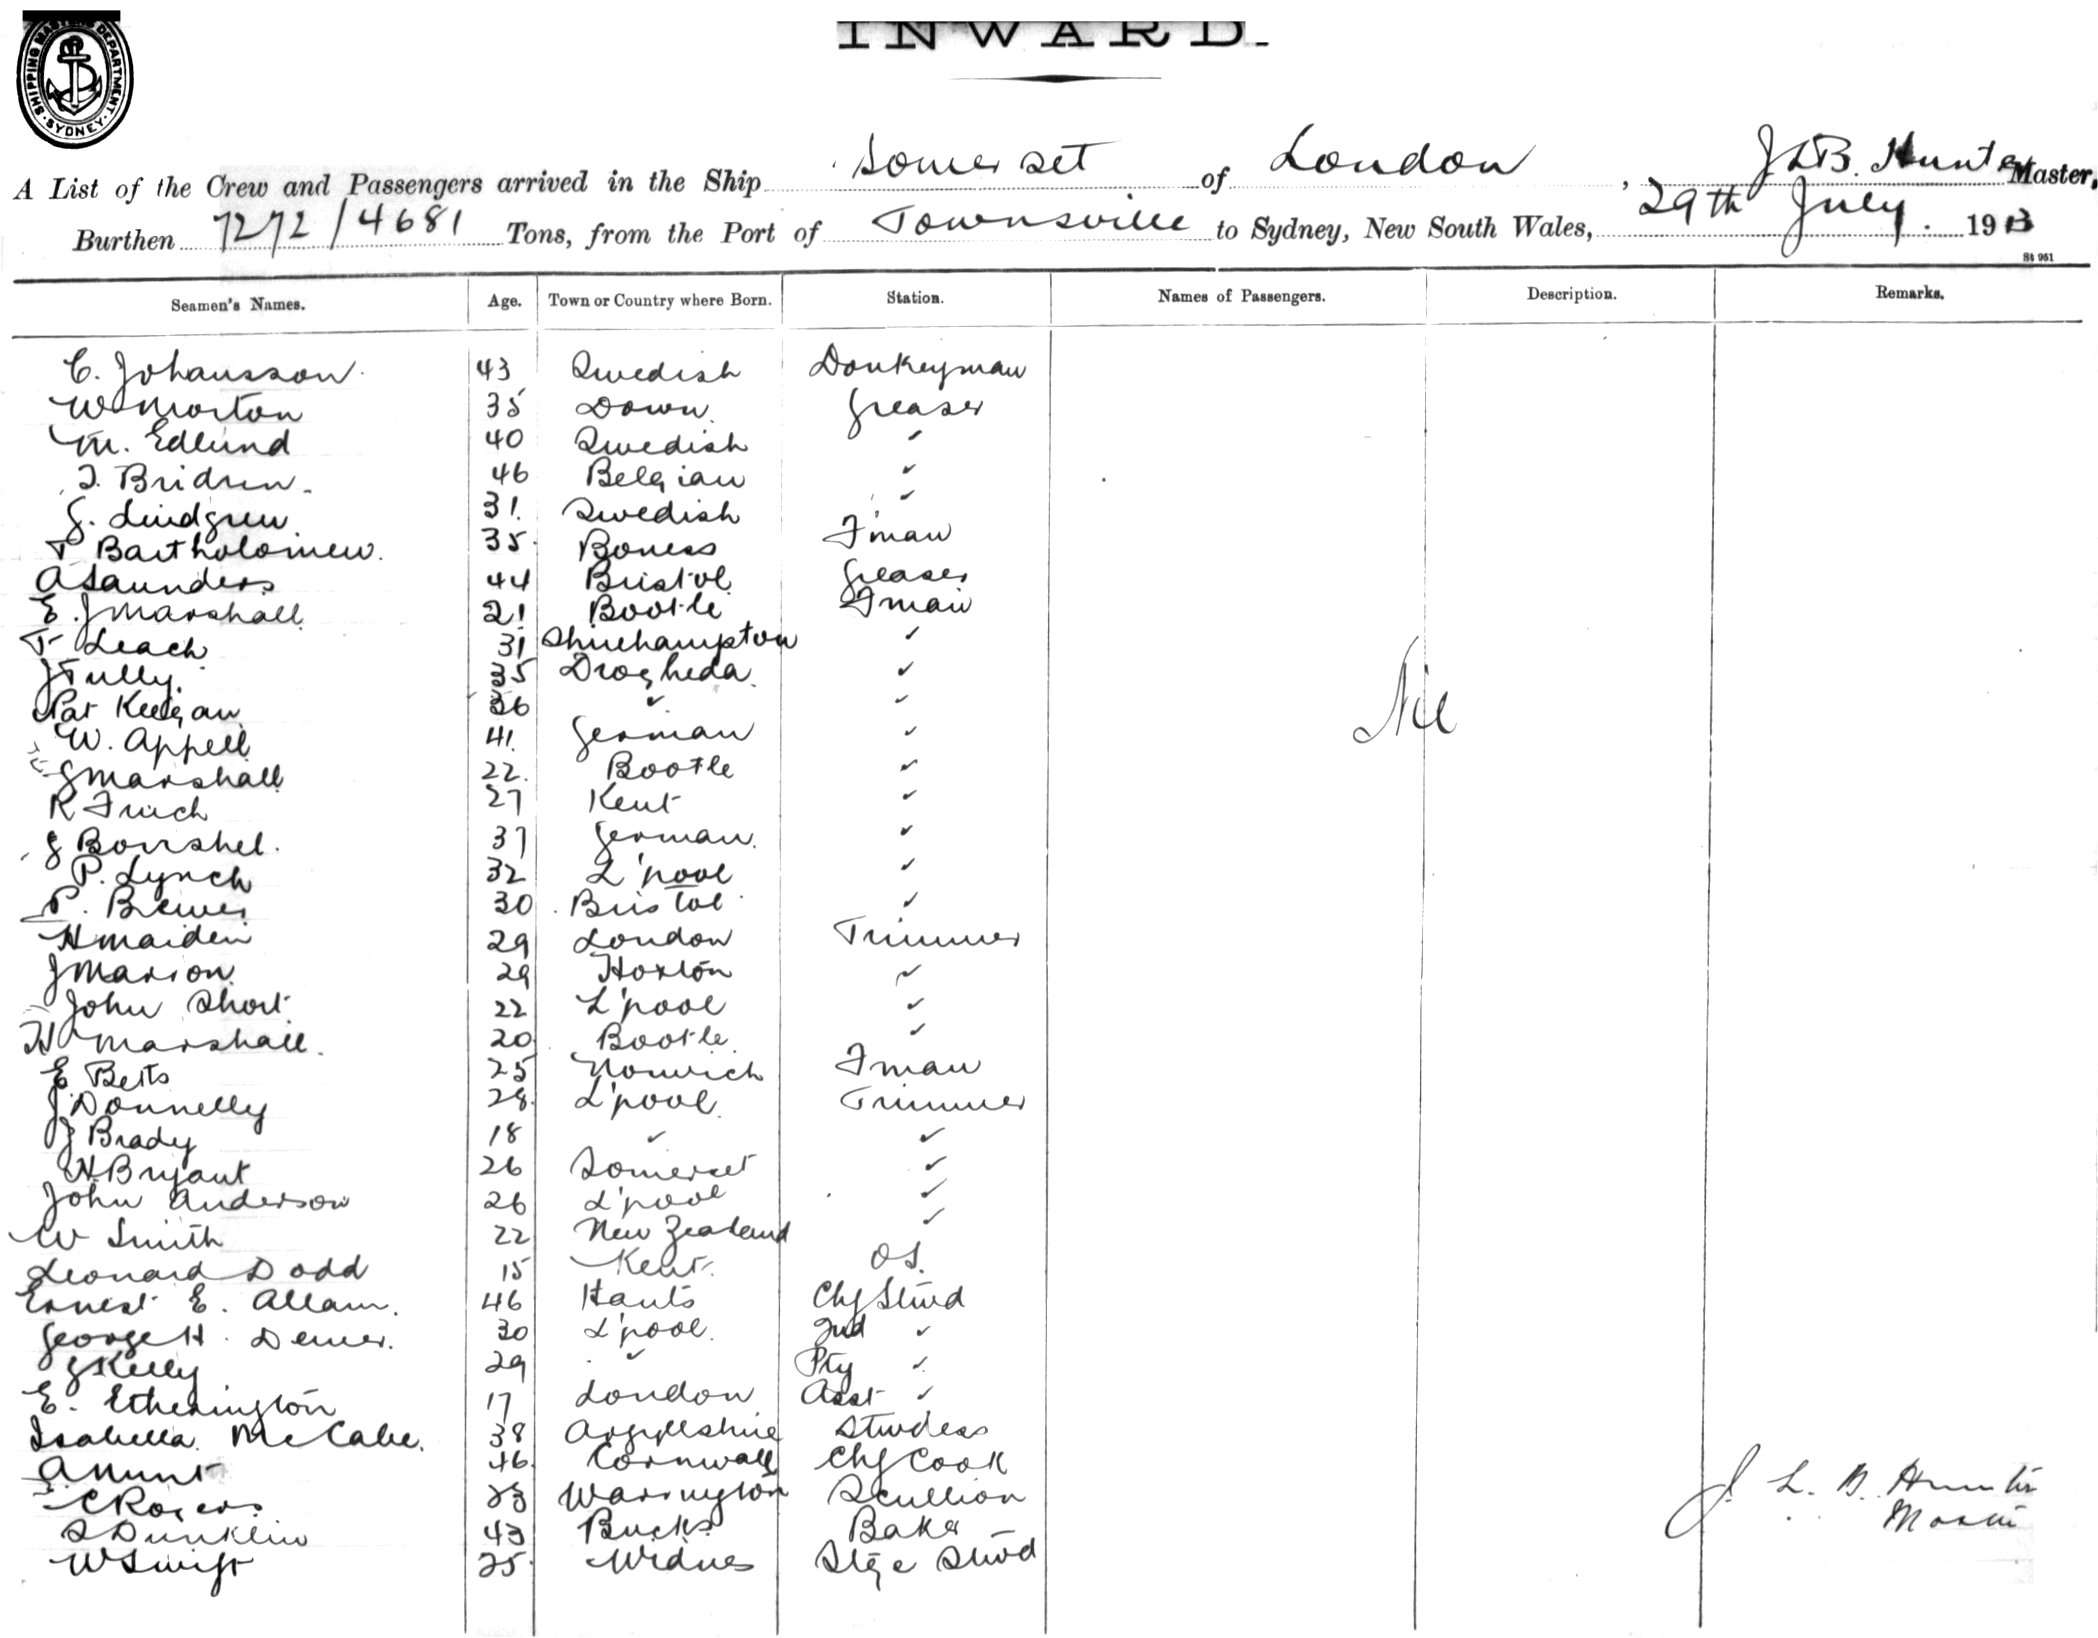 SHIPPING MASTERS DEPARTMENT
SYDNEY
INWARD.
A List of the Crew and Passengers arrived in the Ship Somerset of London, J L B. Hunter Master,
Burthen 7272/4681 Tons, from the Port of Townsville to Sydney, New South Wales, 29th July. 1913
St 951
Seamen's Names. Age. Town or Country where Born. Station. Names of Passengers. Description. Remarks.
C. Johansson 43 Swedish Donkeyman
W Morton 35 Down Greaser
M. Edlund 40 Swedish ✓
46 Belgian ✓
G. Lindgren 31 Swedish ✓
T Bartholomew. 35 Boness F'man
A Saunders 44 Bristol Greaser
E. J Marshall 21 Bootle Fman
T Leach 31 Shirehampton ✓
J Tully. 35 Drogheda ✓
Pat Keegan 36 ✓ ✓
W. Appell 41 German ✓
G Marshall 22 Bootle ✓
R Finch 27 Kent ✓
37 German ✓
P. Lynch 32 L'pool ✓
P. Brewer 30 Bristol ✓
H Maiden 29 London Trimmer
J Marion 29 Hoxton ✓
John Short 22 L'pool ✓
H Marshall 20 Bootle ✓
E Betts 25 Norwich Fman
J Donnelly 28 L'pool Trimmer
J Brady 18 ✓ ✓
H Bryant 26 Somerset ✓
John Anderson 26 L'pool ✓
W Smith 22 New Zealand ✓
Leonard Dodd 15 Kent OS.
Ernest E. Allam. 46 Hants Chf Stwd
George H. 30 L'pool 2nd ✓
J Kelly 29 ✓ Pty ✓
E. Etherington 17 London Asst ✓
Isabella McCabe. 38 Argyllshire Stwdess
A Hunt 46 Cornwall Chf Cook
C Rogers Warrington Scullion
S Dunklin 43 Bucks Baker
W Swift 25 Widnes Stge Stwd
Nil
J. L. B. Hunter
Master